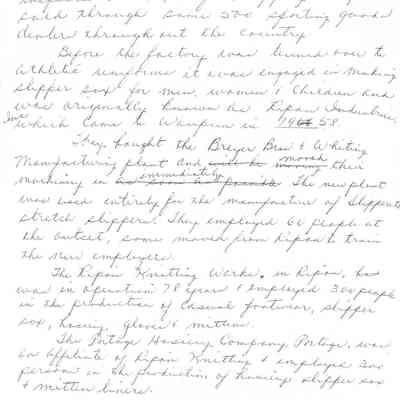 sold through some 500 sporting goods
dealer through out the country.
Before the factory was turned over to
athletic uniforms it was engaged in making
slipper sox for men, women & children and
was originally known as Ripon Industries,
Inc. which came to Waupun in 1964 58.
They bought the Breyer Bros & Whiting
Manufacturing plant and will be moving moved their
machinery in as soon as possible immediately. The new plant
was used entirely for the manufacture of Slipperette
stretch slippers. They employed 60 people at
the outset, some moved from Ripon to train
the new employees.
The Ripon Knitting Works, in Ripon, has
was in operation 78 years & employed 300 people
in the production of casual footwear, slipper
sox, hosiery, gloves & mittens.
The Portage Hosiery Company, Portage, was
an affiliate of Ripon Knitting & employs 300
person in the production of hosiery slipper sox
& mitten liners.